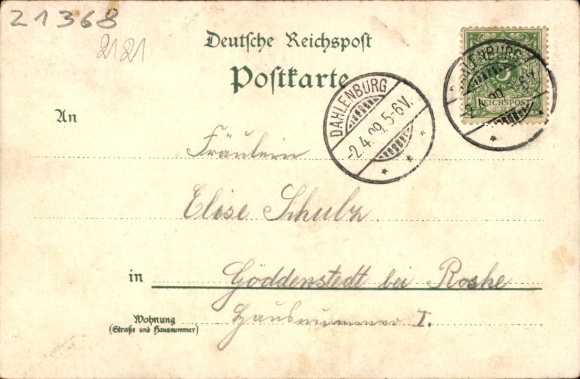 21368
2121
Deutsche Reichspost
Postkarte
DAHLENBURG
-2.4.99.5-6V.
5
REICHSPOST
An
Fräulein
Elise Schulz
in Göddenstedt bei Rosche
Wohnung
(Straße und Hausnummer)
Hausnummer I.